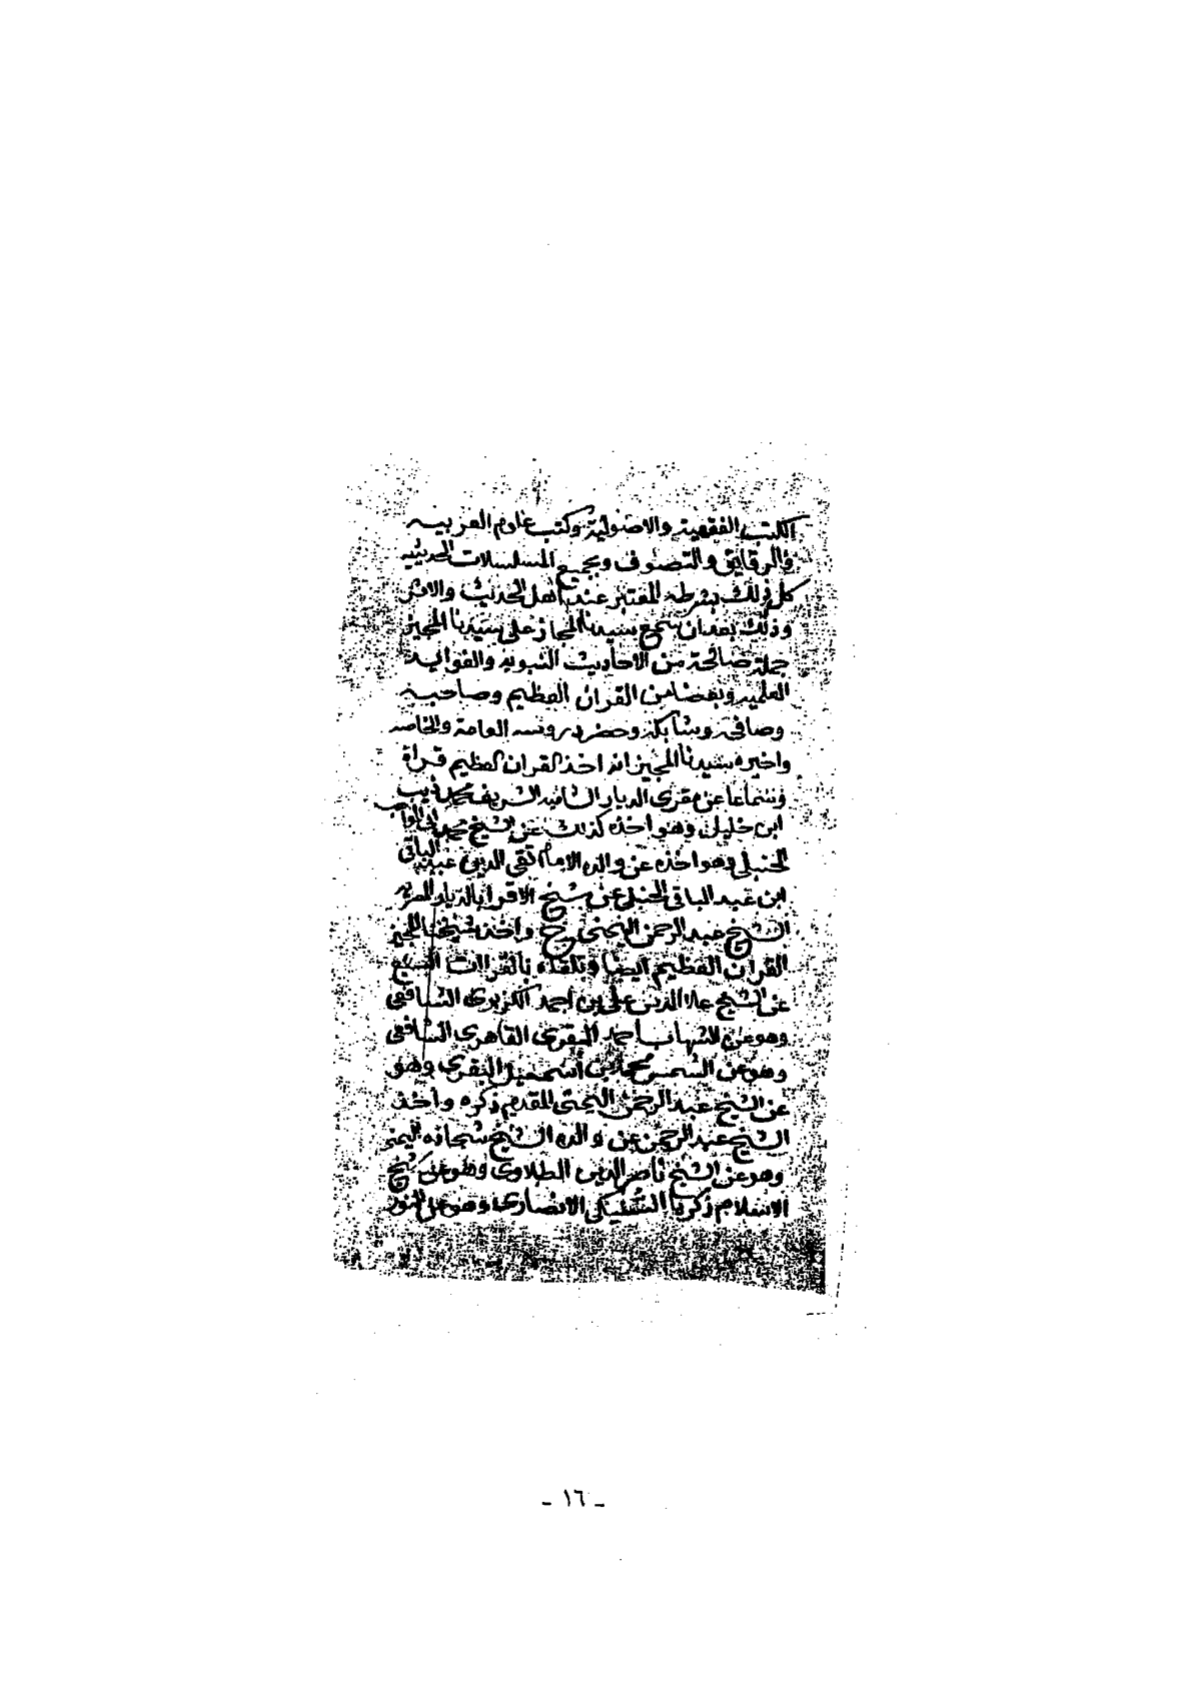 الكتب الفقهية والاصولية وكتب علوم العربيه
والرقايق والتصوف وبجميع المسلسلات الحديثيه
كل ذلك بشرطه المعتبر عند اهل الحديث والاثر
وذلك بعد ان سمع سيدنا المجاز على سيدنا المجيز
جملة صالحة من الاحاديث النبويه والفوايد
العلميه وبعضا من القران العظيم وصاحبه
وصافحه وشابكه وحضر دروسه العامة والخاصه
واخبره سيدنا المجيز انه اخذ القران العظيم قراة
وسماعا عن مقرى الديار الشاميه الشريف محمد ذيب
ابن خليل وهو اخذه كذلك عن الشيخ محمد ابى المواهب
الحنبلى وهو اخذه عن والده الامام تقى الدين عبد الباقى
ابن عبد الباقى الحنبلى عن شيخ الاقرا بالديار المصريه
الشيخ عبد الرحمن اليمنى ح واخذ شيخنا المجيز
القران العظيم ايضا وتلقاه بالقراات السبع
عن الشيخ علا الدين على بن احمد الكزبرى الشافعى
وهو عن الشهاب احمد البقرى القاهرى الشافعى
وهو عن الشمس محمد بن اسمعيل البقرى وهو
عن الشيخ عبد الرحمن اليمنى المقدم ذكره واخذ
الشيخ عبد الرحمن عن والده الشيخ شحاذه اليمنى
وهو عن الشيخ ناصر الدين الطلاوى وهو عن شيخ
الاسلام زكريا السنيكى الانصارى وهو عن النور
- ١٦ -